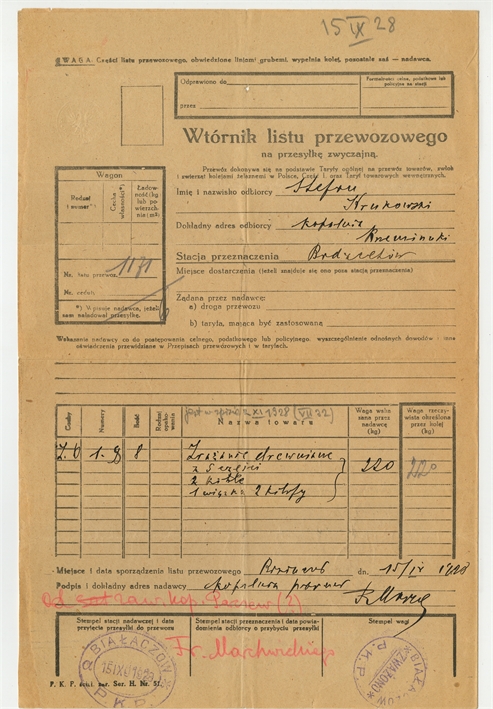 15 IX 28
UWAGA. Części listu przewozowego, obwiedzione linjami grubemi, wypełnia kolej, pozostałe zaś — nadawca.
Odprawiono do
przez
Formularzowi celne, podatkowe lub
policyjne na stacji
Wtórnik listu przewozowego
na przesyłkę zwyczajną.
Przewóz dokonywa się na podstawie Taryfy ogólnej na przewóz towarów, zwłok
i zwierząt kolejami żelaznemi w Polsce, Część I, oraz Taryf towarowych wewnętrznych.
Wagon
Rodzaj i numer*)
Cecha własności*)
Ładowność/kg lub powierzchnia (m²)
Nr. listu przewoz. 1171
*) Wpisuje nadawca, jeżeli sam naładował przesyłkę.
Imię i nazwisko odbiorcy Stefan
Krukowski
Dokładny adres odbiorcy kopalnia
Krzemionki
Stacja przeznaczenia Bodzechów
Miejsce dostarczenia (jeżeli znajduje się ono poza stacją przeznaczenia)
Żądana przez nadawcę:
a) droga przewozu
b) taryfa, mająca być zastosowaną
Wskazania nadawcy co do postępowania celnego, podatkowego lub policyjnego, wyszczególnienie odnośnych dowodów i inne
oświadczenia przewidziane w Przepisach przewozowych i w taryfach.
Cechy
Numery
Ilość
Rodzaj opakowania
Nazwa towaru
Waga wskazana przez nadawcę (kg)
Waga rzeczywista określona przez kolej (kg)
1-8 8 drewniane 220 220
z 5 części
1 wiązka
Miejsce i data sporządzenia listu przewozowego dn. 15/IX 1928
Podpis i dokładny adres nadawcy kopalnia
kop. (?)
Fr. Marchwickiego
Stempel stacji nadawczej i data
przyjęcia przesyłki do przewozu
Stempel stacji przeznaczenia i data powiadomienia
odbiorcy o przybyciu przesyłki
Stempel wagi
BIAŁACZÓW
P.K.P.
BIAŁACZÓW
ZWAŻONO
P.K.P.
P. K. P. Ser. H. Nr. 51.